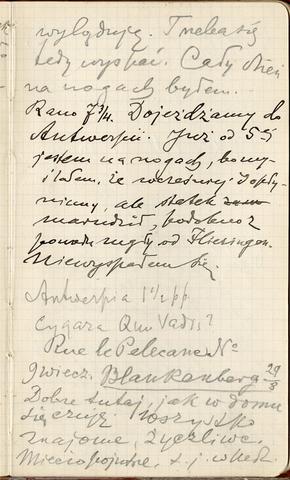 wygląduję. Trzeba się
tedy wyspać. Cały dzień
na nogach byłem.
Rano 7 3/4. Dojeżdżamy do
Antwerpii. Już od 5-ej
jestem na nogach, bo my-
ślałem, że wcześniej dopły-
niemy, ale statek
marudził, podobno z
powodu mgły od Vlissingen.
Niewyspałem się.
Antwerpia 1 1/2 pp.
Cygara Quo Vadis?
Rue le Pelecane No
7 wiecz. Blankenberg 29/3
Dobre tutaj, jak w domu
się czuję. Wszystko
znajome, życzliwe.
t. j. w